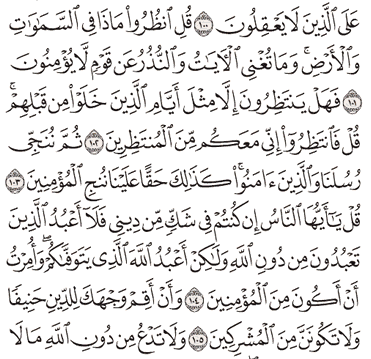 عَلَى الَّذِينَ لَا يَعْقِلُونَ ١٠٠ قُلِ انظُرُوا مَاذَا فِي السَّمَٰوَٰتِ
وَالْأَرْضِ ۚ وَمَا تُغْنِي الْآيَٰتُ وَالنُّذُرُ عَن قَوْمٍ لَّا يُؤْمِنُونَ
١٠١ فَهَلْ يَنتَظِرُونَ إِلَّا مِثْلَ أَيَّامِ الَّذِينَ خَلَوْا مِن قَبْلِهِمْ ۚ
قُلْ فَانتَظِرُوا إِنِّي مَعَكُم مِّنَ الْمُنتَظِرِينَ ١٠٢ ثُمَّ نُنَجِّي
رُسُلَنَا وَالَّذِينَ ءَامَنُوا ۚ كَذَٰلِكَ حَقًّا عَلَيْنَا نُنجِ الْمُؤْمِنِينَ ١٠٣
قُلْ يَٰأَيُّهَا النَّاسُ إِن كُنتُمْ فِي شَكٍّ مِّن دِينِي فَلَا أَعْبُدُ الَّذِينَ
تَعْبُدُونَ مِن دُونِ اللَّهِ وَلَٰكِنْ أَعْبُدُ اللَّهَ الَّذِي يَتَوَفَّىٰكُمْ ۖ وَأُمِرْتُ
أَنْ أَكُونَ مِنَ الْمُؤْمِنِينَ ١٠٤ وَأَنْ أَقِمْ وَجْهَكَ لِلدِّينِ حَنِيفًا
وَلَا تَكُونَنَّ مِنَ الْمُشْرِكِينَ ١٠٥ وَلَا تَدْعُ مِن دُونِ اللَّهِ مَا لَا